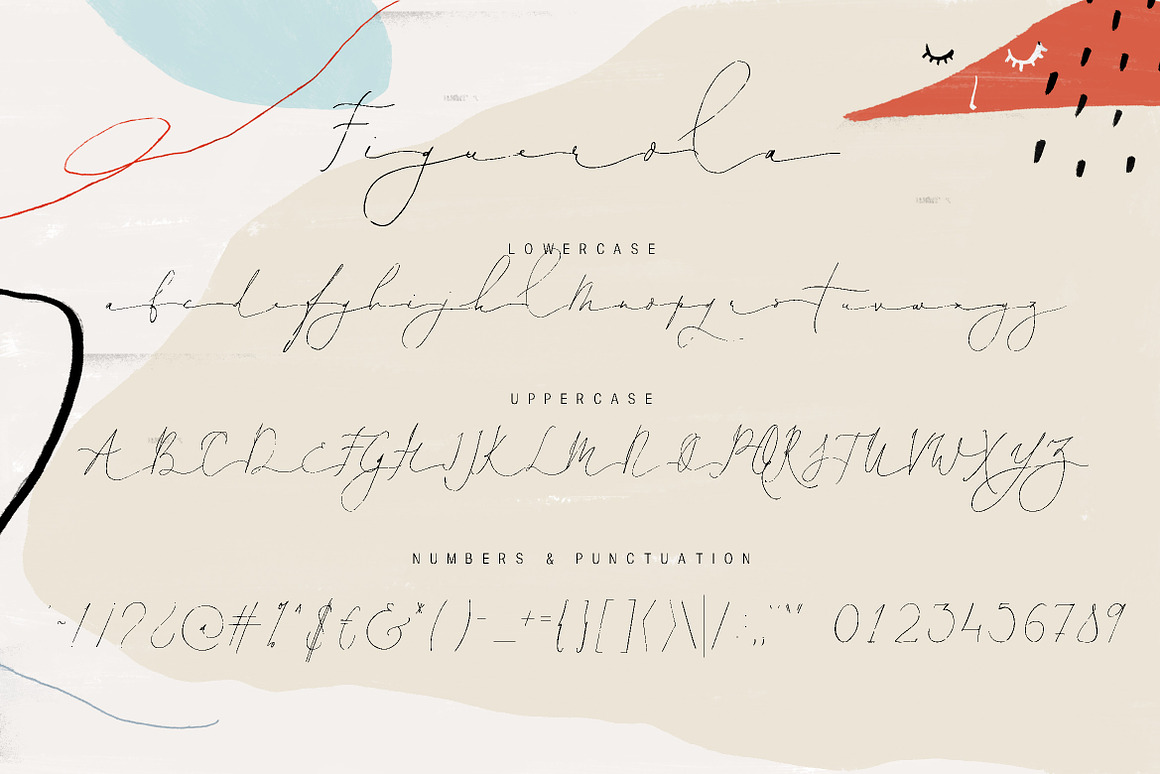 Figuerola
LOWERCASE
a b c d e f g h i j k l m n o p q r s t u v w x y z
UPPERCASE
A B C D E F G H I J K L M N O P Q R S T U V W X Y Z
NUMBERS & PUNCTUATION
~ ! ¡ ? ¿ @ # % ^ $ € & * ( ) - _ + = { } [ ] < > \ | / : ; , " " 0 1 2 3 4 5 6 7 8 9